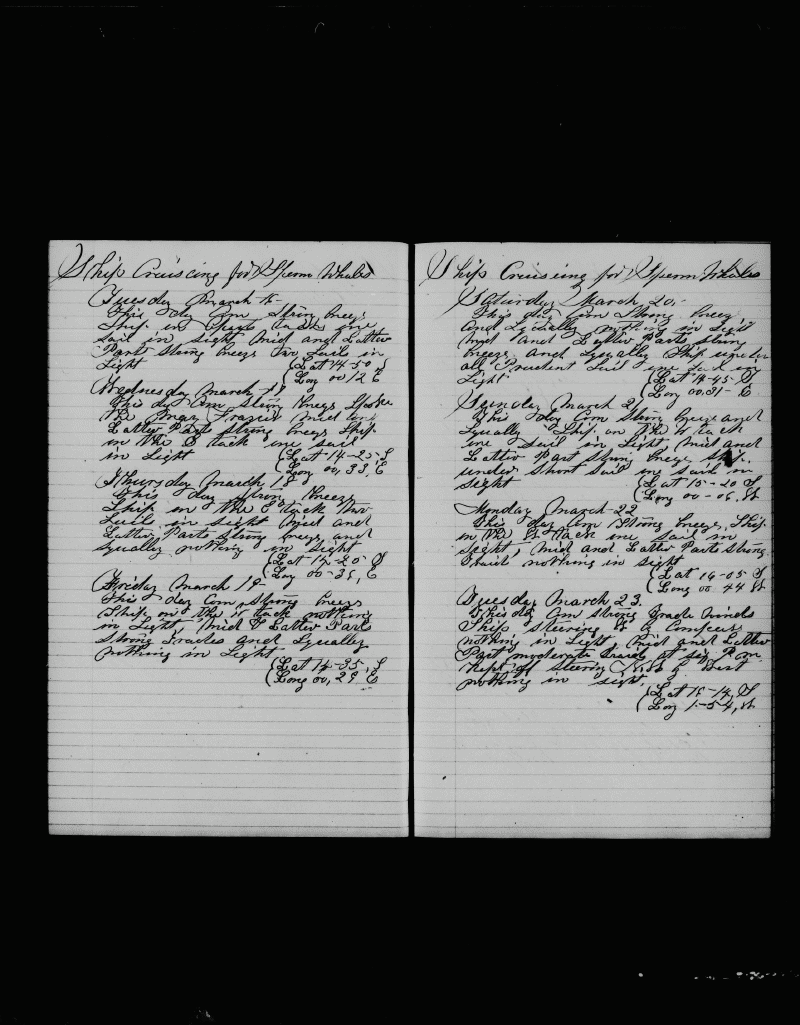 Ship Cruiscing for Sperm Whales
Tuesday March 16
this day Com Strong breeze
Ship in tack one
sail in sight Mid and Latter
Parts Strong breeze two Sails in
Sight (Lat 14-50
(Long 00 12 E
Wednesday March 17
this day Com Strong breeze Spoke
the Mid and
Latter Part strong breeze Ship
in the E tack one sail
in Sight (Lat 14-25 S
(Long 00, 33, E
Thursday March 18
this day Strong breeze
Ship in the E tack two
Sails in sight Mid and
Latter Parts Strong breeze and
Squally nothing in Sight
(Lat 14-20 S
(Long 00-35, E
Friday March 19
this day Com, Strong breeze
Ship on the tack nothing
in Sight, Mid & Latter Parts
Strong Trades and Squally
nothing in Sight
(Lat 14-35, S
(Long 00, 29 E
Ship Cruiscing for Sperm Whales
Saturday March 20,
this day Com Strong breez
and Squally nothing in Sight
Mid and Latter Parts strong
breeze and Squally Ship under
all Prudent Sail one Sail in
Sight (Lat 14-45 S
(Long 00 31 - E
Sunday March 21
this day Com Strong breeze and
Squally Ship on the W tack
one Sail in Sight Mid and
Latter Part Strong breeze Ship
under Short Sail one Sail in
sight (Lat 15-20 S
(Long 00-06, W
Monday March 22
this day Com Strong breeze, Ship
in the W tack one sail in
Sight, Mid and Latter Parts strong
nothing in Sight
(Lat 16-05 S
(Long 00 44 W
Tuesday March 23.
this day Com strong trade winds
Ship steering by Compass
nothing in Sight Mid and Latter
Part moderate at six P.m.
Kept off Steering West
nothing in sight,
(Lat 15-14, S
(Long 1-54, W